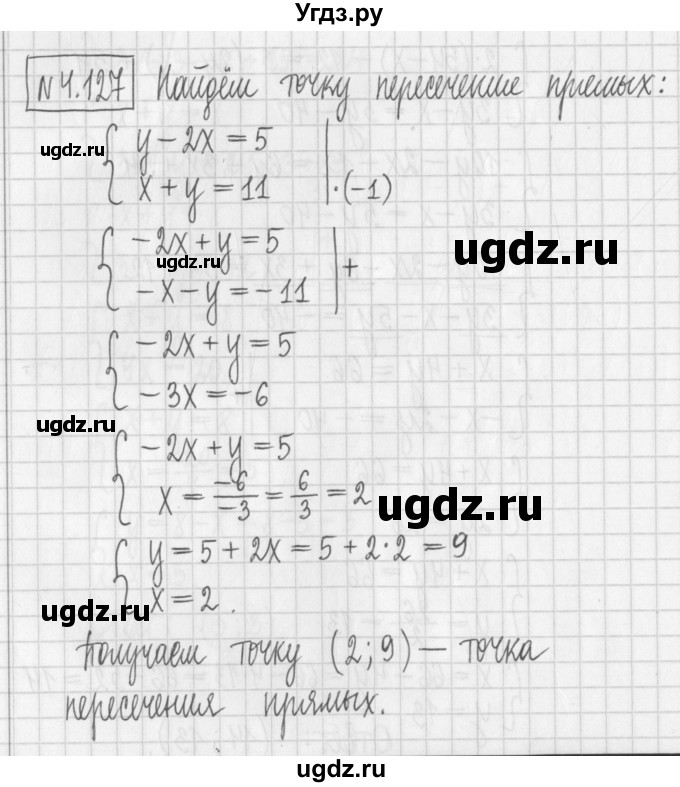 Угдз.ру
№4.127 Найдём точку пересечение приемых:
y - 2x = 5
ugdz.ru
x + y = 11 | ·(-1)
-2x + y = 5
ugdz.ru
ugdz.ru
+
-x - y = -11
-2x + y = 5
-3x = -6
ugdz.ru
-2x + y = 5
x = -6/-3 = 6/3 = 2
ugdz.ru
y = 5 + 2x = 5 + 2·2 = 9
ugdz.ru
x = 2.
Получаем точку (2; 9) — точка
пересечения прямых.
ugdz.ru